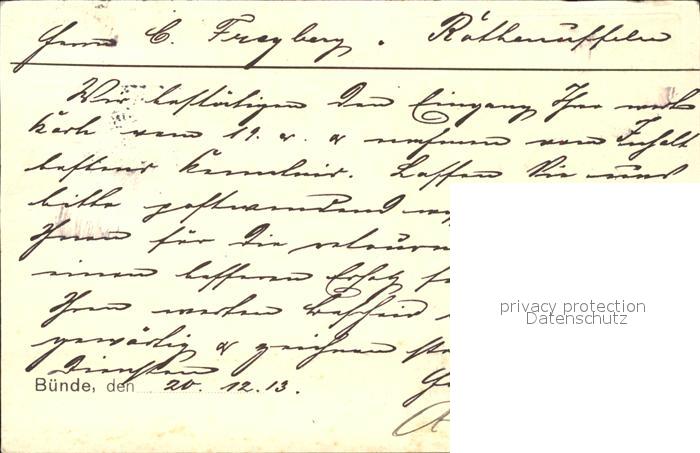 Herrn C. Freyberg. Röthenuffeln
Wir bestätigen den Eingang Ihrer werten
Karte vom 19. d. & nahmen vom Inhalt
bestens Kenntnis. Lassen Sie uns
bitte postwendend
Ihnen für die
einen besseren Ersatz
Ihren werten Bescheid
gewärtig & zeichnen
Diensten
Bünde, den 20. 12. 13.
privacy protection
Datenschutz